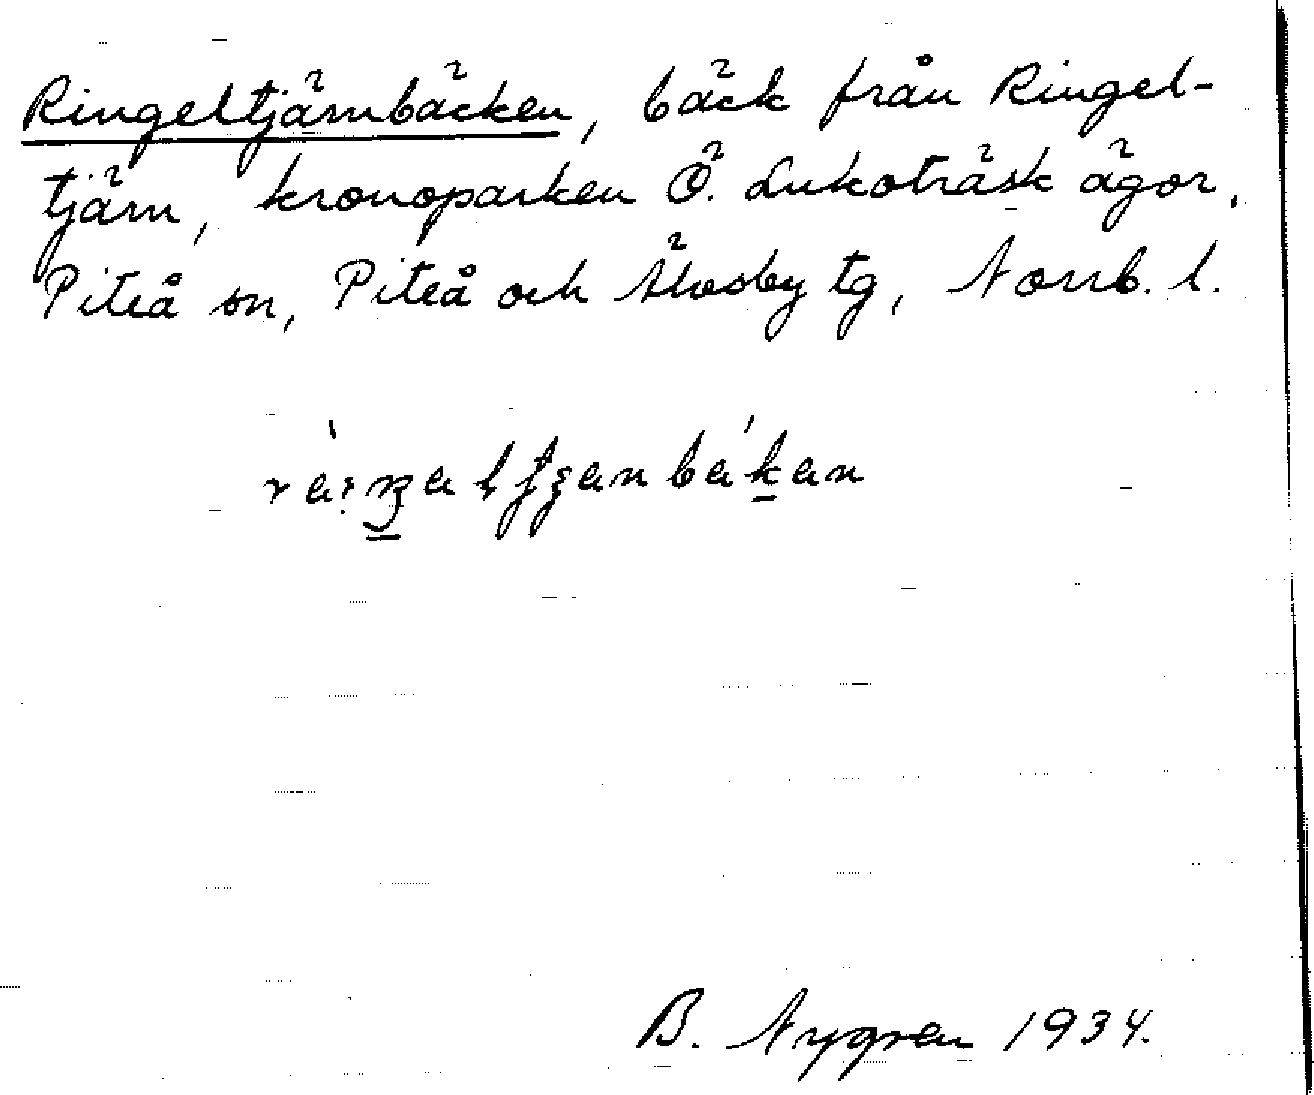 Ringeltjärnbäcken, bäck från Ringel-
tjärn, kronoparken Ö. Lukoträsk ägor,
Piteå sn, Piteå och Älvsby tg, Norrb. l.
B. Nygren 1934.